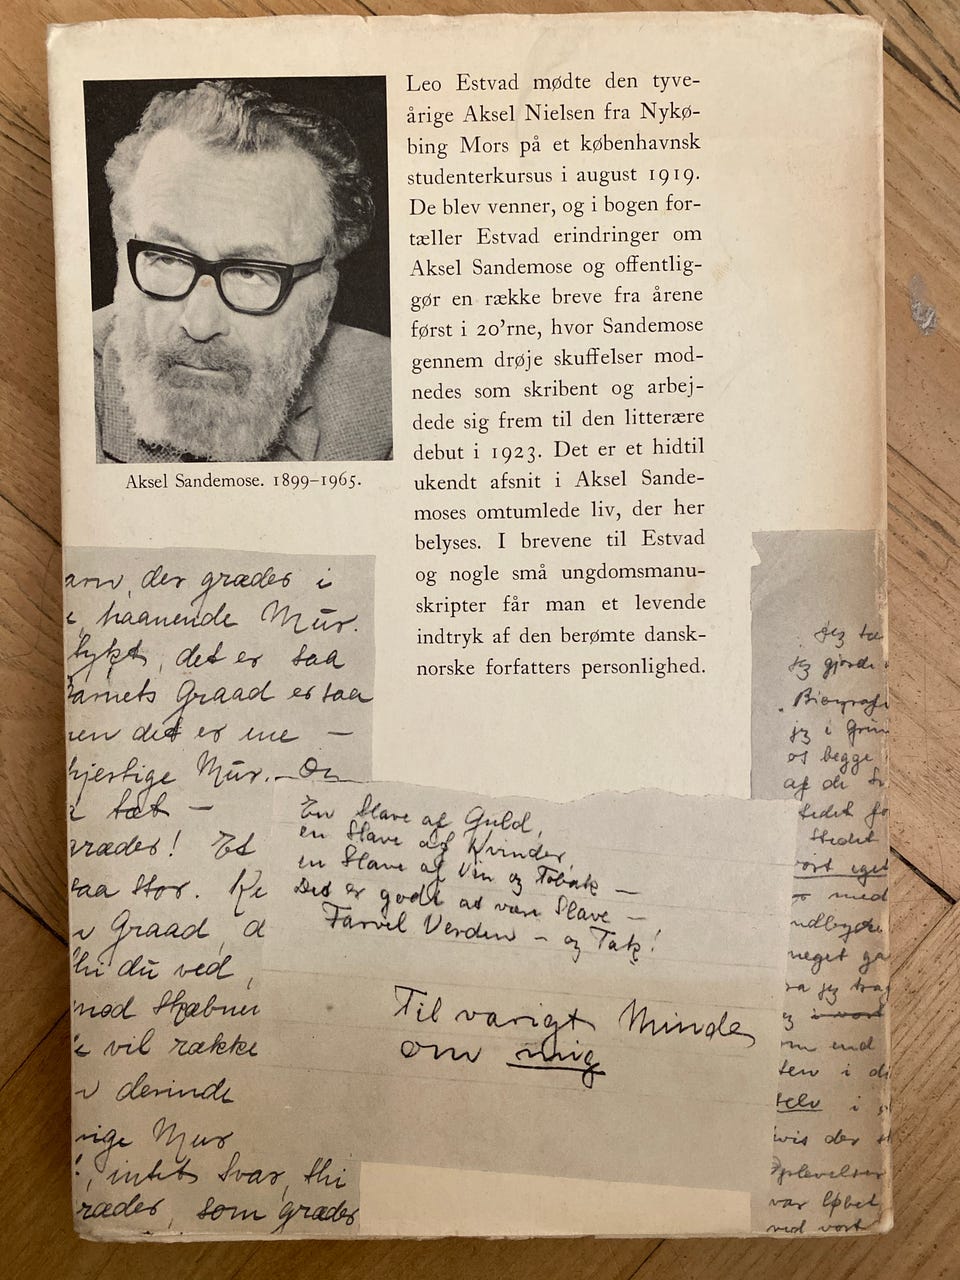 Leo Estvad mødte den tyve-
årige Aksel Nielsen fra Nykø-
bing Mors på et københavnsk
studenterkursus i august 1919.
De blev venner, og i bogen for-
tæller Estvad erindringer om
Aksel Sandemose og offentlig-
gør en række breve fra årene
først i 20'rne, hvor Sandemose
gennem drøje skuffelser mod-
nedes som skribent og arbej-
dede sig frem til den litterære
debut i 1923. Det er et hidtil
ukendt afsnit i Aksel Sande-
moses omtumlede liv, der her
belyses. I brevene til Estvad
og nogle små ungdomsmanu-
skripter får man et levende
indtryk af den berømte dansk-
norske forfatters personlighed.
Aksel Sandemose. 1899–1965.
der græder i
haanende Mur.
det er saa
Barnets Graad er saa
det er ene —
Mur. — Og
tæt —
græder! Et
saa stor.
Graad, d
thi du ved,
mod
vil række
derinde
Mur
intet Svar, thi
græder, som græder
En Slave af Guld,
en Slave af Kvinder,
en Slave af Vin og Tobak —
Det er godt at være Slave —
Farvel Verden — og Tak!
Til varigt Minde
om mig
jeg
jeg gjorde
jeg i
og begge
af de
stedet
Stedet
vort eget
med
meget
jeg
end
i
selv i
der
Oplevelser
var løbet
ved vort